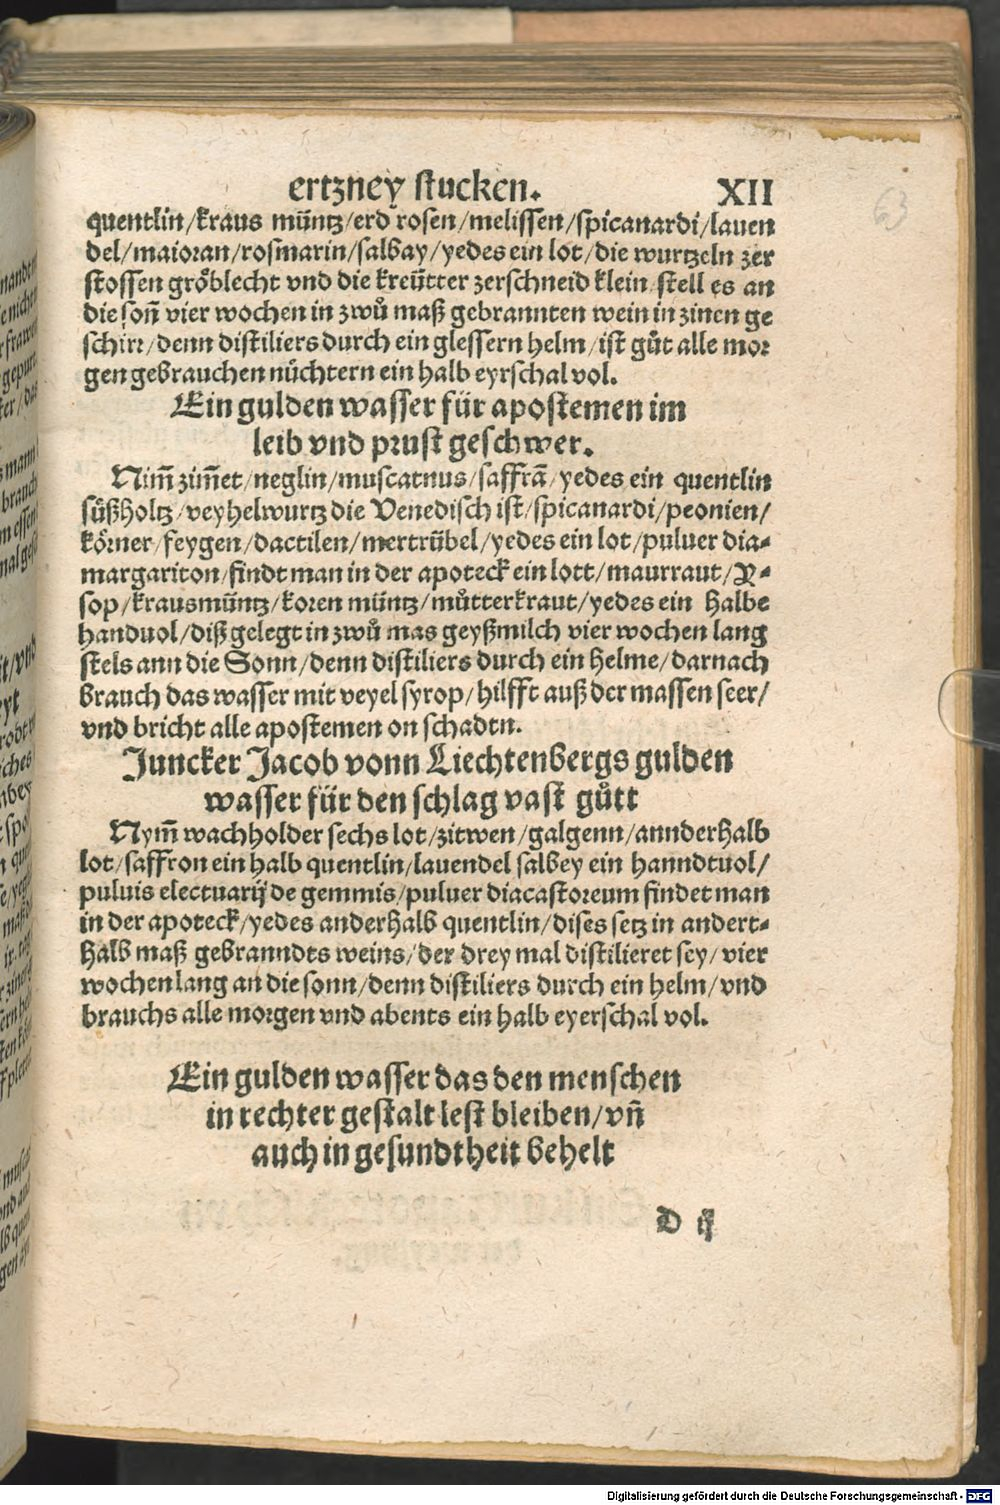 ertzney stucken. XII
63
quentlin/kraus müntz/erd rosen/melissen/spicanardi/lauen
del/maioran/rosmarin/salbay/yedes ein lot/die wurtzeln zer
stossen gröblecht vnd die kreütter zerschneid klein/stell es an
die soñ vier wochen in zwů maß gebrannten wein in zinen ge
schirr/denn distiliers durch ein glessern helm/ist gůt alle mor
gen gebrauchen nüchtern ein halb eyrschal vol.
Ein gulden wasser für apostemen im
leib vnd prust geschwer.
Nim̃ zim̃et/neglin/muscatnus/saffrã/yedes ein quentlin
süßholtz/veyhelwurtz die Venedisch ist/spicanardi/peonien/
körner/feygen/dactilen/mertrübel/yedes ein lot/puluer dia-
margariton/findt man in der apoteck ein lott/maurraut/Y-
sop/krausmüntz/koren müntz/můtterkraut/yedes ein halbe
handuol/diß gelegt in zwů mas geyßmilch vier wochen lang
stels ann die Sonn/denn distiliers durch ein helme/darnach
brauch das wasser mit veyel syrop/hilfft auß der massen seer/
vnd bricht alle apostemen on schadtn.
Juncker Jacob vonn Liechtenbergs gulden
wasser für den schlag vast gůtt
Nym̃ wachholder sechs lot/zitwen/galgenn/annderhalb
lot/saffron ein halb quentlin/lauendel salbey ein hanndtuol/
puluis electuarij de gemmis/puluer diacastoreum findet man
in der apoteck/yedes anderhalb quentlin/dises setz in andert-
halb maß gebranndts weins/der drey mal distilieret sey/vier
wochen lang an die sonn/denn distiliers durch ein helm/vnd
brauchs alle morgen vnd abents ein halb eyerschal vol.
Ein gulden wasser das den menschen
in rechter gestalt lest bleiben/vñ
auch in gesundtheit behelt
D ij
Digitalisierung gefördert durch die Deutsche Forschungsgemeinschaft - DFG